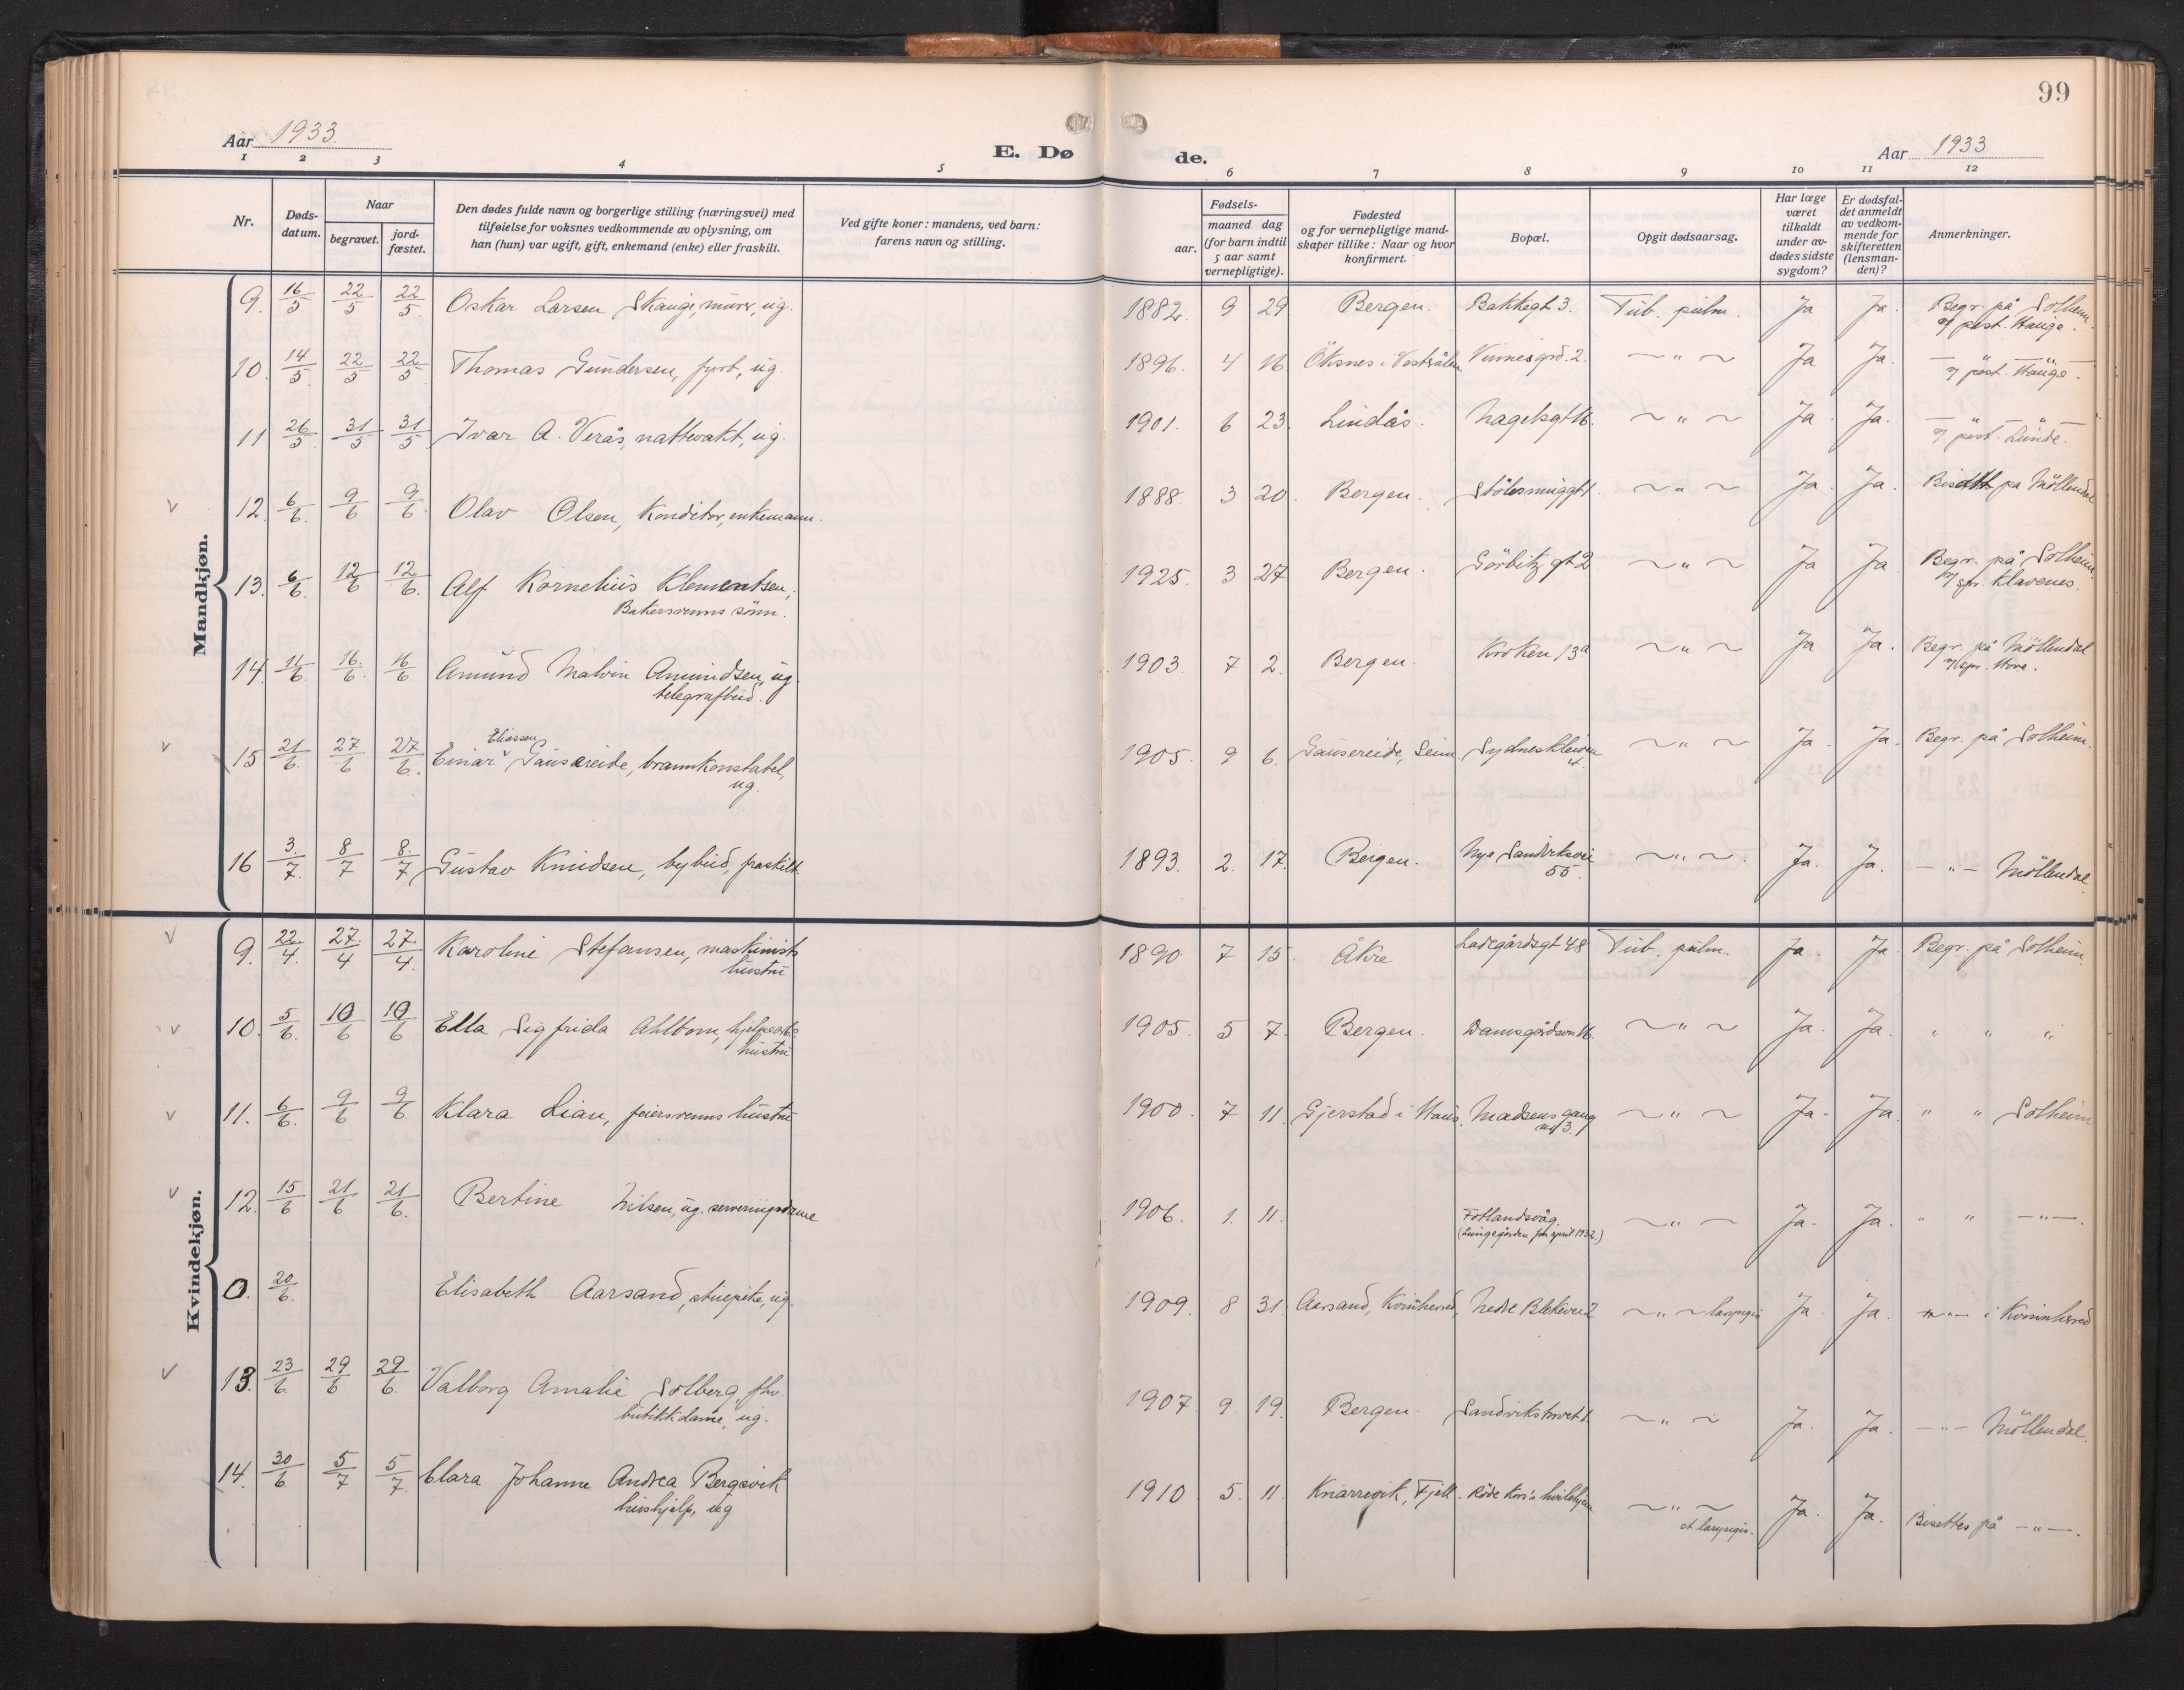 99
Aar 1933.
E. Dø
de.
Aar 1933
1 2 3 4 5 6 7 8 9 10 11 12
Nr.
Døds-
datum.
Naar
begravet.
jord-
fæstet.
Den dødes fulde navn og borgerlige stilling (næringsvei) med
tilføielse for voksnes vedkommende av oplysning, om
han (hun) var ugift, gift, enkemand (enke) eller fraskilt.
Ved gifte koner: mandens, ved barn:
farens navn og stilling.
Fødsels-
aar.
maaned dag
(for barn indtil
5 aar samt
vernepligtige).
Fødested
og for vernepligtige mand-
skaper tillike: Naar og hvor
konfirmert.
Bopæl.
Opgit dødsaarsag.
Har læge
været
tilkaldt
under av-
dødes sidste
sygdom?
Er dødsfal-
det anmeldt
av vedkom-
mende for
skifteretten
(lensman-
den)?
Anmerkninger.
Mandkjøn.
9. 16/5 22/5 22/5 Oskar Larsen Skauge, murer, ug. 1882. 9 29 Bergen. Bakkegt 3. Tub. pulm. Ja Ja. Begr. på Solheim.
v/ past. Hauge.
10. 14/5 22/5 22/5 Thomas Gundersen, fyrb, ug. 1896. 4 16 Öksnes i Vestrålen Vinnesgrd. 2. — " — Ja Ja. — " — " —
v/ past. Hauge.
11 26/5 31/5 31/5 Ivar A. Verås, nattevakt, ug. 1901. 6 23. Lindås. Nagelsgt 16. — " — Ja. Ja. — " — " —
v/ past. Lunde.
v 12. 6/6. 9/6 9/6. Olav Olsen, Konditor, enkemann. 1888. 3 20. Bergen. Stölesmuggt 1. — " — Ja. Ja. på Möllendal
13. 6/6. 12/6 12/6. Alf Kornelius Klementsen,
Bakersvenns sönn.
1925. 3 27 Bergen. Görbitz gt 2 — " — Ja Ja Begr. på Solheim.
v/ spr. Klavenes.
14. 11/6. 16/6. 16/6 Amund Malvin Amundsen, ug.
telegrafbud.
1903. 7 2. Bergen. Kroken 13a — " — Ja Ja. Begr. på Möllendal
v/ spr. Hove.
v 15 21/6. 27/6 27/6. Einar Eliassen Gausereide, brannkonstabel,
ug.
1905. 9 6. Gausereide, Seim Sydneskleiven
— " — Ja. Ja. Begr. på Solheim.
16 3/7. 8/7 8/7 Gustav Knudsen, bybud, fraskilt. 1893. 2. 17. Bergen. Nye Sandviksvei
55.
— " — Ja. Ja. — " — Möllendal
Kvindekjøn.
v 9. 22/4. 27/4 27/4. Karoline Stefansen, maskinists
hustru
1890. 7 15. Åkre Ladegårdsgt 48 Tub. pulm. Ja. Ja. Begr. på Solheim.
v 10. 5/6. 10/6 10/6 Ella Sigfrida Ahlbom,
hustru
1905. 5 7. Bergen Damsgårdsvn 16. — " — Ja. Ja. " " "
v 11. 6/6. 9/6 9/6 Klara Lian, feiersvenns hustru 1900. 7 11 Gjerstad i Haus. Madsens gang
nr 3.
— " — Ja. Ja. " " Solheim
v 12. 15/6 21/6 21/6. Bertine Nilsen, ug. serveringsdame 1906. 1. 11. Fotlandsvåg.
(Lungegården før april 1932.)
— " — Ja. Ja. " " — " —.
0. 20/6. Elisabeth Aarsand, stuepike, ug. 1909. 8 31. Aarsand, Kvinherred, Nedre Blekevei 2 — " — laryngis Ja. Ja. — " — i Kvinnherred
v 13. 23/6. 29/6 29/6. Valborg Amalie Solberg, fhv.
butikkdame, ug.
1907 9. 19. Bergen. Sandvikstorvet 1. — " — Ja. Ja. — " — Möllendal.
14. 30/6. 5/7 5/7. Clara Johanne Andrea Bergsvik
hushjelp, ug
1910 5. 11. Knarrevik, Fjell. Röde Kors hvilehjem — " —
et laryngis.
Ja. Ja. Bisettes på — " —.